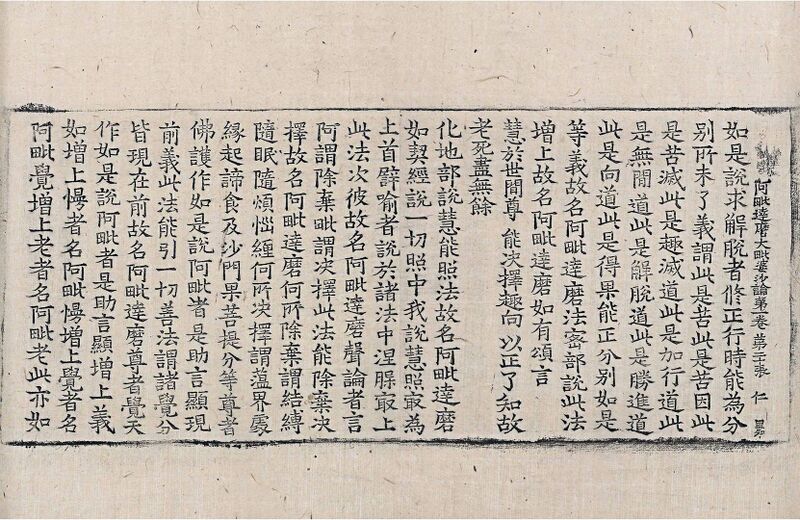 阿毗達磨大毗婆沙論苐一卷 仁
如是說求解脫者修正行時能為分
別所未了義謂此是苦此是苦因此
是苦滅此是趣滅道此是加行道此
是無間道此是解脫道此是勝進道
此是向道此是得果能正分別如是
等義故名阿毗達磨法密部說此法
增上故名阿毗達磨如有頌言
慧於世間尊 能决擇趣向 以正了知故
老死盡無餘
化地部說慧能照法故名阿毗達磨
如契經說一切照中我說慧照最為
上首譬喻者說於諸法中涅槃最上
此法次彼故名阿毗達磨聲論者言
阿謂除棄毗謂决擇此法能除棄决
擇故名阿毗達磨何所除棄謂結縛
隨眠隨煩惱纏何所决擇謂蘊界處
緣起諦食及沙門果菩提分等尊者
佛護作如是說阿毗者是助言顯現
前義此法能引一切善法謂諸覺分
皆現在前故名阿毗達磨尊者覺天
作如是說阿毗者是助言顯增上義
如增上慢者名阿毗慢增上覺者名
阿毗覺增上老者名阿毗老此亦如